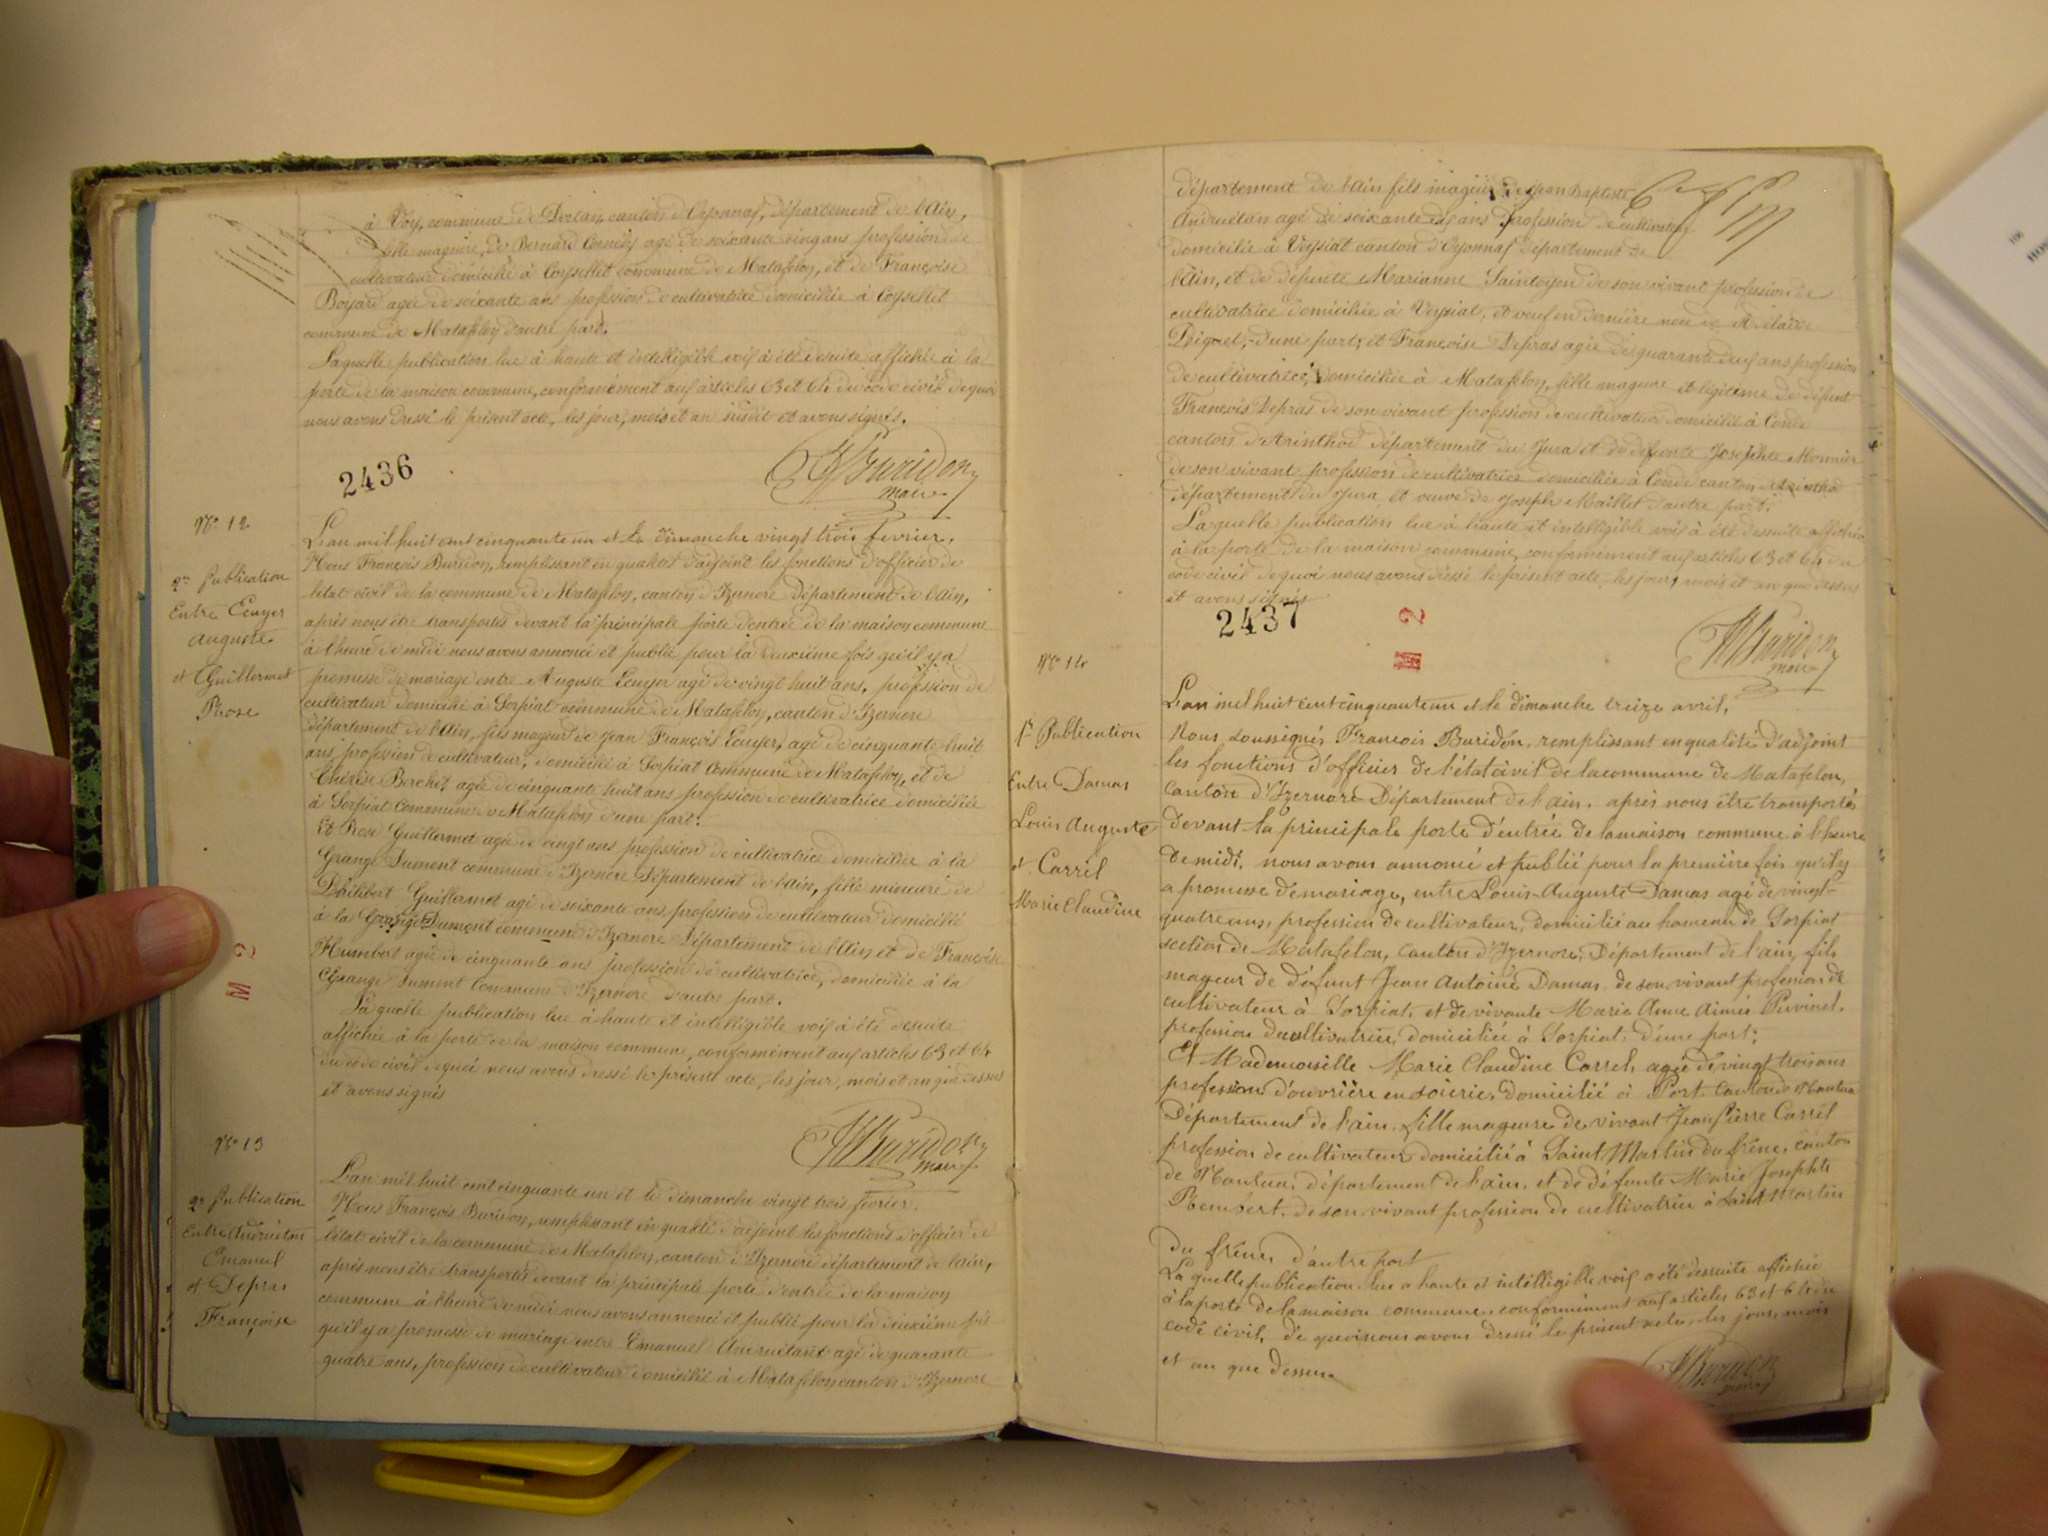 à Voy, commune de Dortan, canton d'Oyonnax, département de l'Ain,
fille mageure, de Bernard agé de soixante cinq ans profession de
cultivateur domicilié à Coyssellet commune de Matafelon, et de Françoise
Boyard agée de soixante ans profession de cultivatrice domiciliée à Coyssellet
commune de Matafelon d'autre part.
Laquelle publication lue à haute et intelligible voix à été desuite affichée à la
porte de la maison commune, conformément aux articles 63 et 64 du code civil de quoi
nous avons dressé le présent acte, les jour, mois et an susdit et avons signés.
F Buridon
maire
2436
No 12
2e Publication
Entre Ecuyer
auguste
et Guillermet
Rose
L'an mil huit cent cinquante un et le dimanche vingt trois fevrier.
Nous François Buridon, remplissant en qualité d'adjoint les fonctions d'officier de
l'état civil de la commune de Matafelon, canton d'Izernore Département de l'Ain,
après nous être transportés devant la principale porte d'entrée de la maison commune
à l'heure de midi nous avons annoncé et publié pour la deuxième fois qu'il y a
promesse de mariage entre Auguste Ecuyer agé de vingt huit ans, profession de
cultivateur domicilié à Sorpiat commune de Matafelon, canton d'Izernore
département de l'Ain, fils mageur de Jean François Ecuyer, agé de cinquante huit
ans, profession de cultivateur, domicilié à Sorpiat commune de Matafelon, et de
Thérèse Berchet agée de cinquante huit ans profession de cultivatrice domiciliée
à Sorpiat commune de Matafelon d'une part.
Et Rose Guillermet agée de vingt ans profession de cultivatrice domiciliée à la
Grange Dument commune d'Izernore Département de l'Ain, fille mineure de
Philibert Guillermet agé de soixante ans, profession de cultivateur domicilié
à la Grange Dument commune d'Izernore Département de l'Ain et de Françoise
Humbert agée de cinquante ans profession de cultivatrice, domiciliée à la
Grange Dument Commune d'Izernore d'autre part.
La quelle publication lue à haute et intelligible voix à été desuite
affichée à la porte de la maison commune, conformément aux articles 63 et 64
du code civil de quoi nous avons dressé le présent acte, les jour, mois et an que dessus
et avons signés
F Buridon
maire
M 2
No 13
2e Publication
Entre Andruétan
Emanuel
et Depras
Françoise
L'an mil huit cent cinquante un et le dimanche vingt trois fevrier.
Nous François Buridon, remplissant en qualité d'adjoint les fonctions d'officier de
l'état civil de la commune de Matafelon, canton d'Izernore département de l'ain,
après nous être transportés devant la principale porte d'entrée de la maison
commune à l'heure de midi nous avons annoncé et publié pour la deuxième fois
qu'il y a promesse de mariage entre Emanuel Andruétant agé de quarante
quatre ans, profession de cultivateur domicilié à Matafelon canton d'Izernore
département de l'Ain fils mageur de Jean Baptiste
Andruétan agé de soixante ans profession de cultivateur
domicilié à Veyziat canton d'Oyonnax département de
l'Ain, et de défunte Marianne Saintoyen de son vivant profession de
cultivatrice domiciliée à Veyziat, et veuf en dernière noce de Adelaïde
d'une part; et Françoise Depras agée de quarante deux ans profession
de cultivatrice, domiciliée à Matafelon, fille mageure et légitime de défunt
François Depras de son vivant profession de cultivateur domicilié à Condé
canton d'Arinthod département du Jura et de défunte Josephte Monnier
de son vivant profession de cultivatrice domiciliée à Condé canton d'Arinthod
département du Jura et veuve de Joseph Maillet d'autre part.
La quelle publication lue à haute et intelligible voix à été desuite affichée
à la porte de la maison commune, conformément aux articles 63 et 64 du
code civil de quoi nous avons dressé le présent acte, les jour, mois et an que dessus
et avons signés
2437
M 2
F Buridon
maire
No 14
1re Publication
Entre Damas
Louis Auguste
et Carrel
Marie Claudine
L'an mil huit cent cinquante un et le dimanche treize avril,
Nous soussignés François Buridon, remplissant en qualité d'adjoint
les fonctions d'officier de l'état civil de la commune de Matafelon,
canton d'Izernore Département de l'ain, après nous être transportés
devant la principale porte d'entrée de la maison commune à l'heure
de midi, nous avons annoncé et publié pour la première fois qu'il y
a promesse de mariage, entre Louis-Auguste Damas agé de vingt-
quatre ans, profession de cultivateur, domicilié au hameau de Sorpiat
section de Matafelon, canton d'Izernore, Département de l'ain, fils
mageur de défunt Jean Antoine Damas de son vivant profession de
cultivateur à Sorpiat, et de vivante Marie Anne Aimée
profession de cultivatrice, domiciliée à Sorpiat, d'une part;
Et Mademoiselle Marie Claudine Carrel, agée de vingt trois ans
profession d'ouvrière en soierie, domicilié à Port canton de Nantua
Département de l'ain. fille mageure de vivant Jean Pierre Carrel
profession de cultivateur domicilié à Saint Martin du frêne, canton
de Nantua, département de l'ain, et de défunte Marie Josephte
Rembert, de son vivant profession de cultivatrice à Saint Martin
du frêne, d'autre part
La quelle publication lue a haute et intelligible voix a été desuite affichée
à la porte de la maison commune conformément aux articles 63 et 64 du
code civil, de quoi nous avons dressé le présent acte, les jour, mois
et an que dessus.
F Buridon
maire